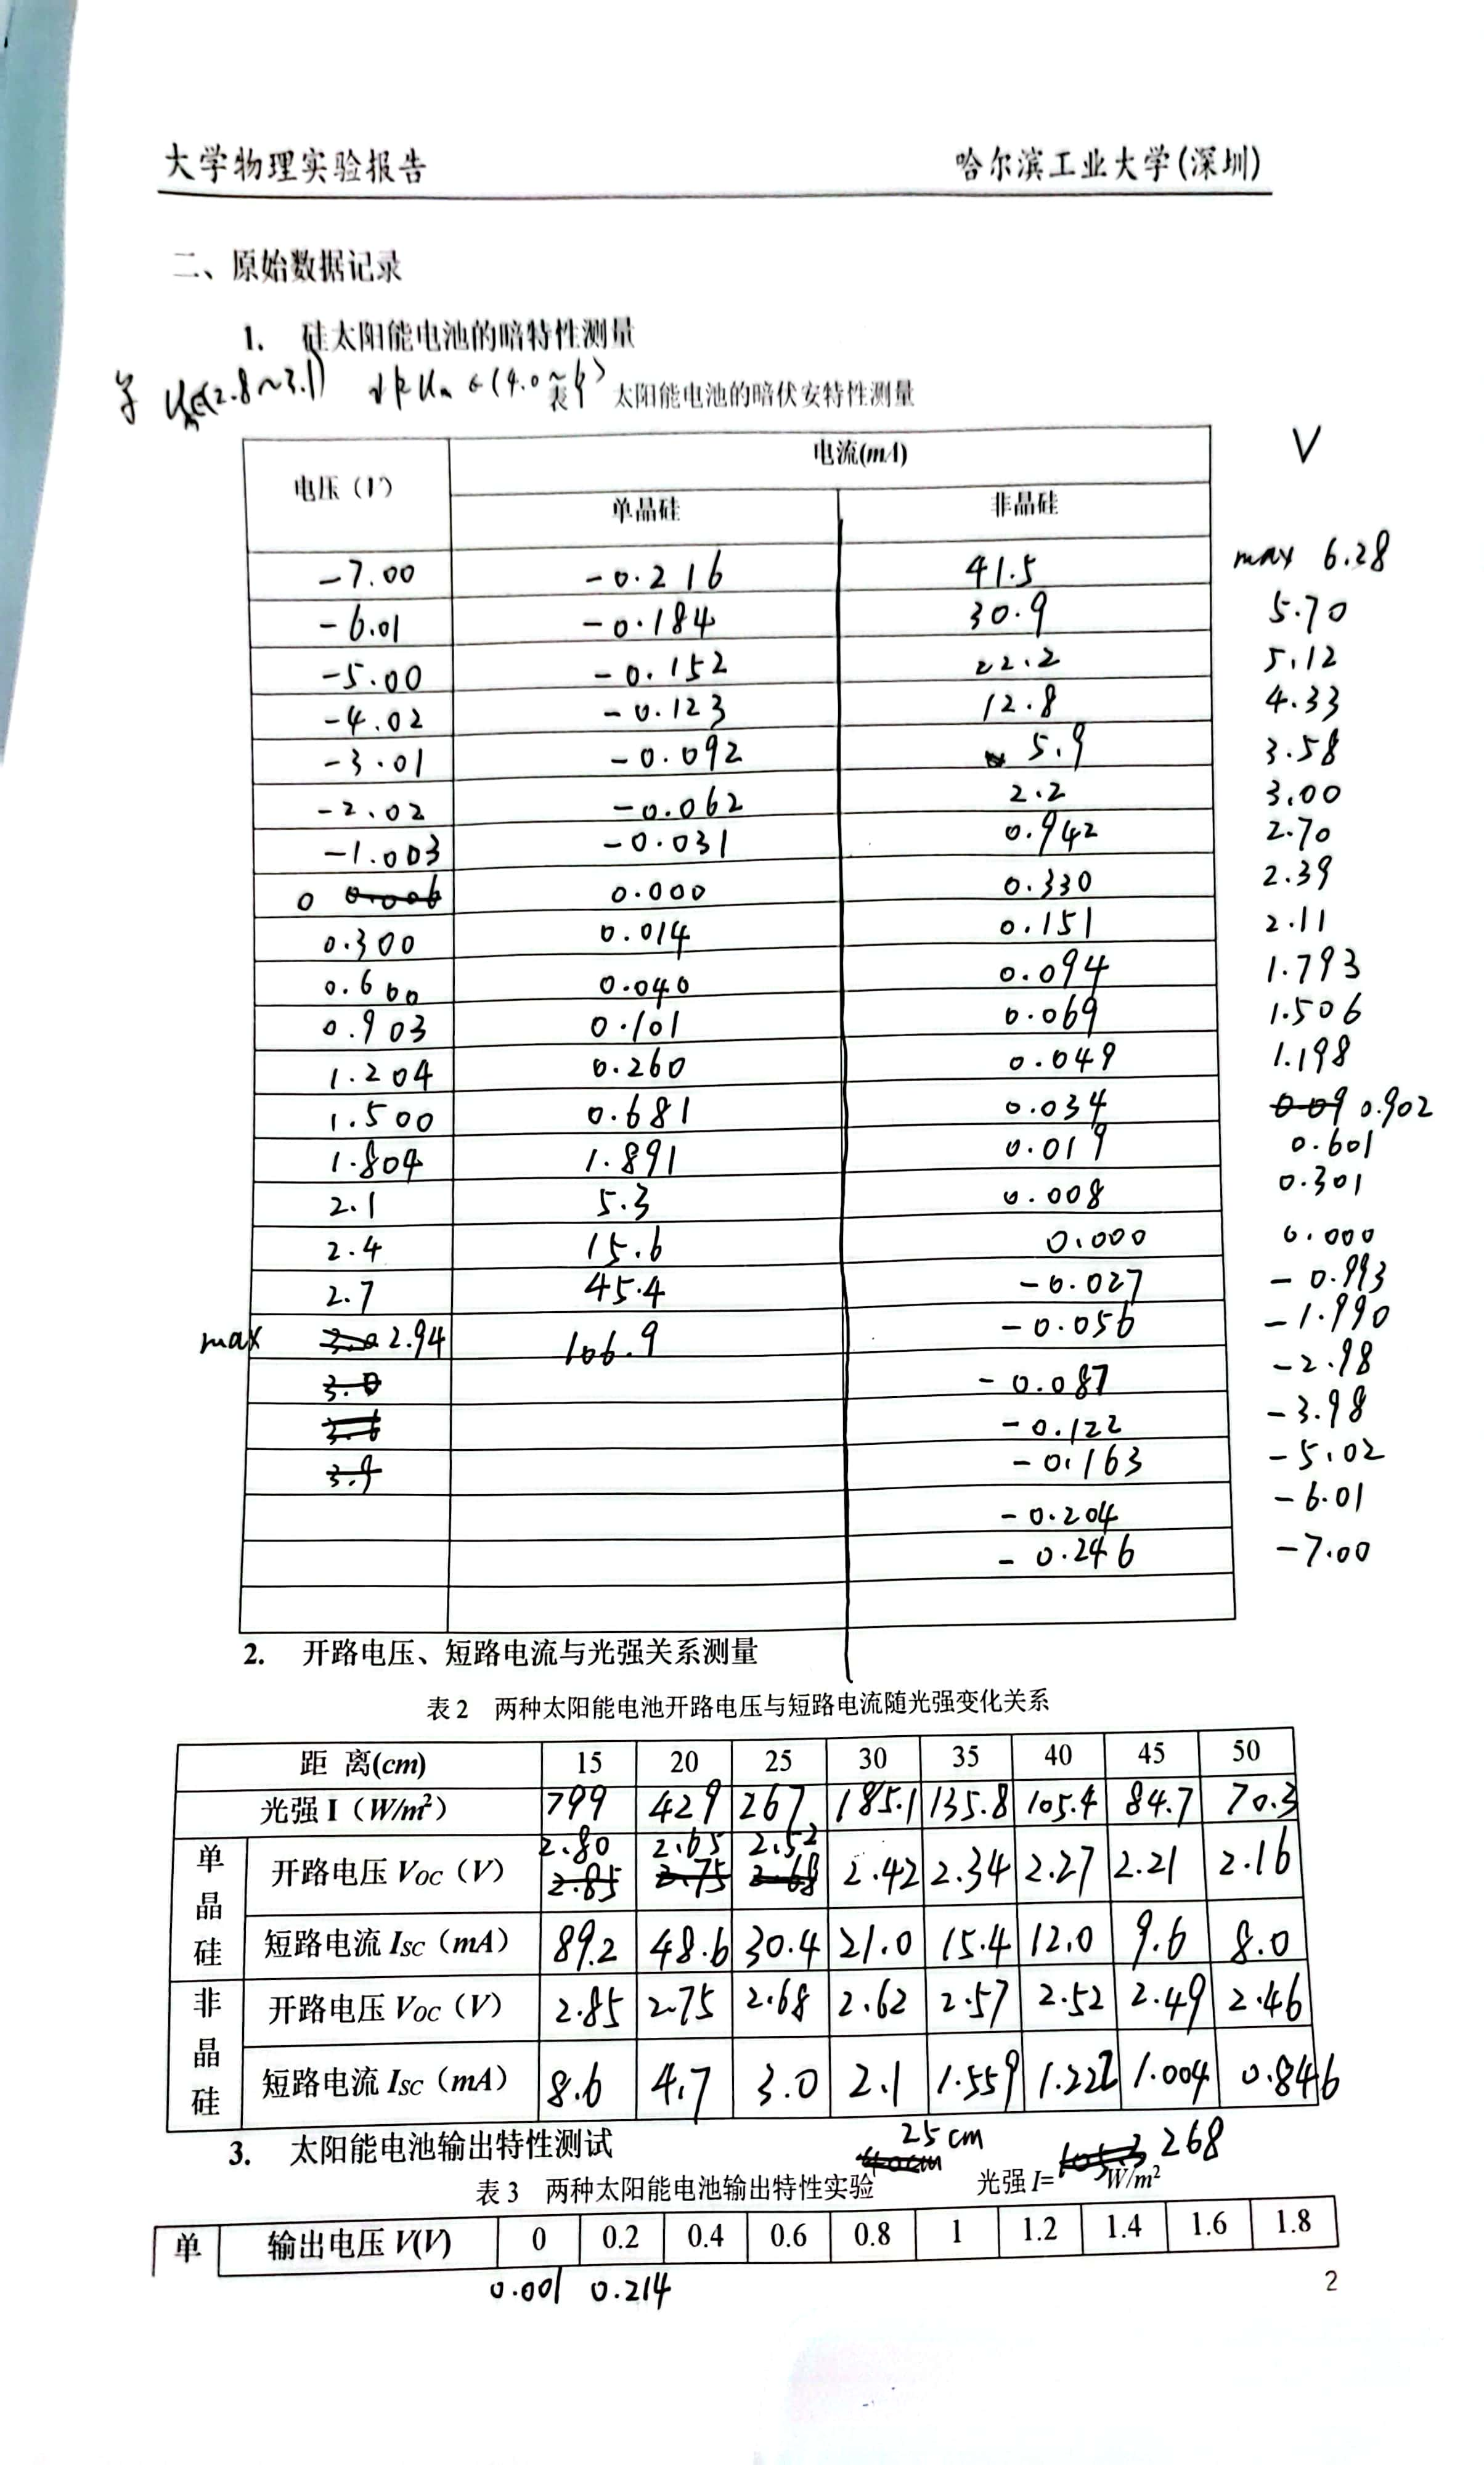 大学物理实验报告 哈尔滨工业大学(深圳)
二、原始数据记录
1. 硅太阳能电池的暗特性测量
太阳能电池的暗伏安特性测量
电压（V） 电流(mA) V
单晶硅 非晶硅
-7.00 -0.216 41.5 max 6.28
-6.01 -0.184 30.9 5.70
-5.00 -0.152 22.2 5.12
-4.02 -0.123 12.8 4.33
-3.01 -0.092 5.9 3.58
-2.02 -0.062 2.2 3.00
-1.003 -0.031 0.942 2.70
0 0.006 0.000 0.330 2.39
0.300 0.014 0.151 2.11
0.600 0.040 0.094 1.793
0.903 0.101 0.069 1.506
1.204 0.260 0.049 1.198
1.500 0.681 0.034 0.09 0.902
1.804 1.891 0.019 0.601
2.1 5.3 0.008 0.301
2.4 15.6 0.000 0.000
2.7 45.4 -0.027 -0.993
max 3.0 2.94 106.9 -0.056 -1.990
-0.087 -2.98
3.6 -0.122 -3.98
3.9 -0.163 -5.02
-0.204 -6.01
-0.246 -7.00
2. 开路电压、短路电流与光强关系测量
表 2 两种太阳能电池开路电压与短路电流随光强变化关系
距 离(cm) 15 20 25 30 35 40 45 50
光强 I（W/m²） 799 429 267 185.1 135.8 105.4 84.7 70.3
2.80 2.65 2.52
单晶硅 开路电压 VOC（V） 2.85 2.75 2.68 2.42 2.34 2.27 2.21 2.16
短路电流 ISC（mA） 89.2 48.6 30.4 21.0 15.4 12.0 9.6 8.0
非晶硅 开路电压 VOC（V） 2.85 2.75 2.68 2.62 2.57 2.52 2.49 2.46
短路电流 ISC（mA） 8.6 4.7 3.0 2.1 1.559 1.222 1.004 0.846
3. 太阳能电池输出特性测试 25cm
表 3 两种太阳能电池输出特性实验 40cm 光强 I= 105.3 268 W/m²
单 输出电压 V(V) 0 0.2 0.4 0.6 0.8 1 1.2 1.4 1.6 1.8
0.001 0.214
2